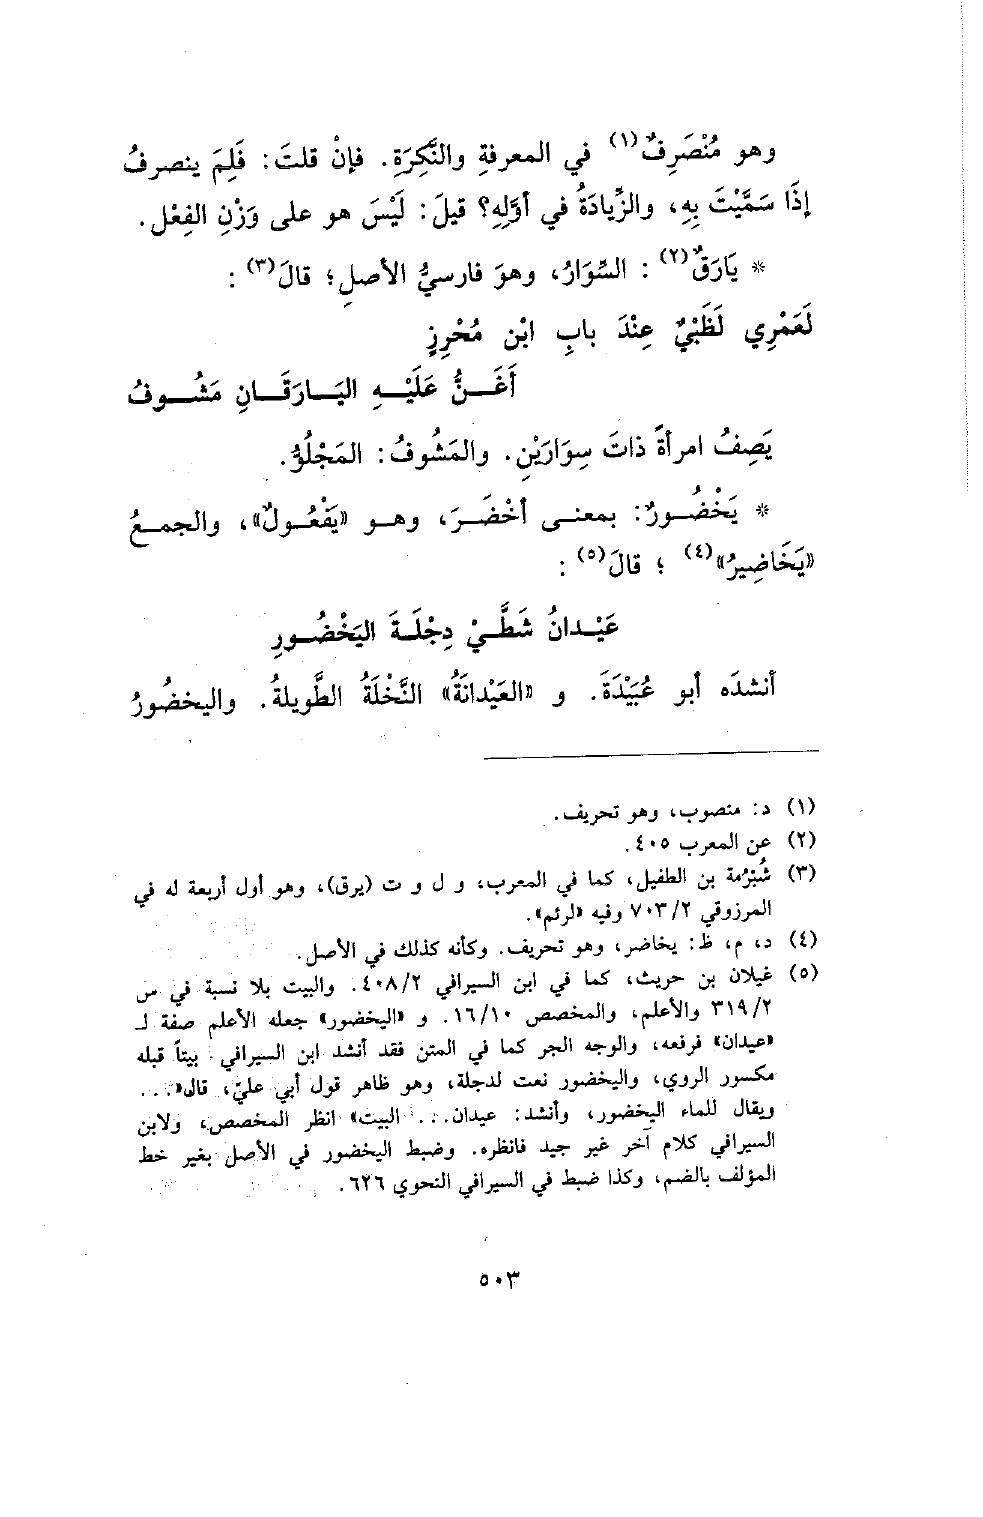 وهو مُنْصَرِفٌ(١) في المعرفةِ والنَّكِرَةِ. فإنْ قلتَ: فَلِمَ ينصرفُ
إذَا سَمَّيْتَ بِهِ، والزِّيادَةُ في أوَّلِهِ؟ قيلَ: لَيْسَ هو على وَزْنِ الفِعْل.
* يَارَقٌ(٢) : السِّوَارُ، وهوَ فارسيُّ الأصلِ؛ قالَ(٣) :
لَعَمْرِي لَظَبْيٌ عِنْدَ بابِ ابْن مُحْرِزٍ
أَغَـنُّ عَلَيْـهِ اليَـارَقَـانِ مَشُـوفُ
يَصِفُ امرأةً ذاتَ سِوَارَيْنِ. والمَشُوفُ: المَجْلُوُّ.
* يَخْضُـورٌ: بمعنـى أخْضَـرَ، وهـو «يَفْعُـولٌ»، والجمـعُ
«يَخَاضِيرُ»(٤) ؛ قالَ(٥) :
عَيْـدانُ شَطَّـيْ دِجْلَـةَ اليَخْضُـورِ
أنشدَه أبو عُبَيْدَةَ. و «العَيْدانَةُ» النَّخْلَةُ الطَّويلةُ. واليخضُورُ
(١) د: منصوب، وهو تحريف.
(٢) عن المعرب ٤٠٥.
(٣) شُبْرُمة بن الطفيل، كما في المعرب، و ل و ت (يرق)، وهو أول أربعة له في
المرزوقي ٧٠٣/٢ وفيه «لرئم».
(٤) د، م، ظ: يخاضر، وهو تحريف. وكأنه كذلك في الأصل.
(٥) غيلان بن حريث، كما في ابن السيرافي ٤٠٨/٢. والبيت بلا نسبة في س
٣١٩/٢ والأعلم، والمخصص ١٦/١٠. و «اليخضور» جعله الأعلم صفة لـ
«عيدان» فرفعه، والوجه الجر كما في المتن فقد أنشد ابن السيرافي بيتاً قبله
مكسور الروي، واليخضور نعت لدجلة، وهو ظاهر قول أبي عليّ، قال«...
ويقال للماء اليخضور، وأنشد: عيدان... البيت» انظر المخصص، ولابن
السيرافي كلام آخر غير جيد فانظره. وضبط اليخضور في الأصل بغير خط
المؤلف بالضم، وكذا ضبط في السيرافي النحوي ٦٢٦.
٥٠٣